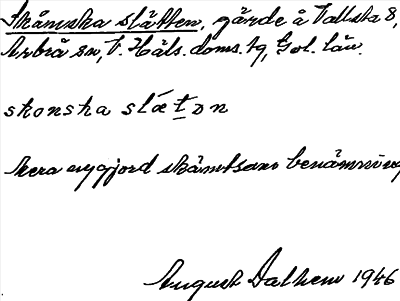 Skånska slätten, gärde å Vallsta 8,
Arbrå sn, V. Häls. doms. tg, Gvl. län.
skonska slætɔn
mera nygjord skämtsam benämning
August Dalhem 1946